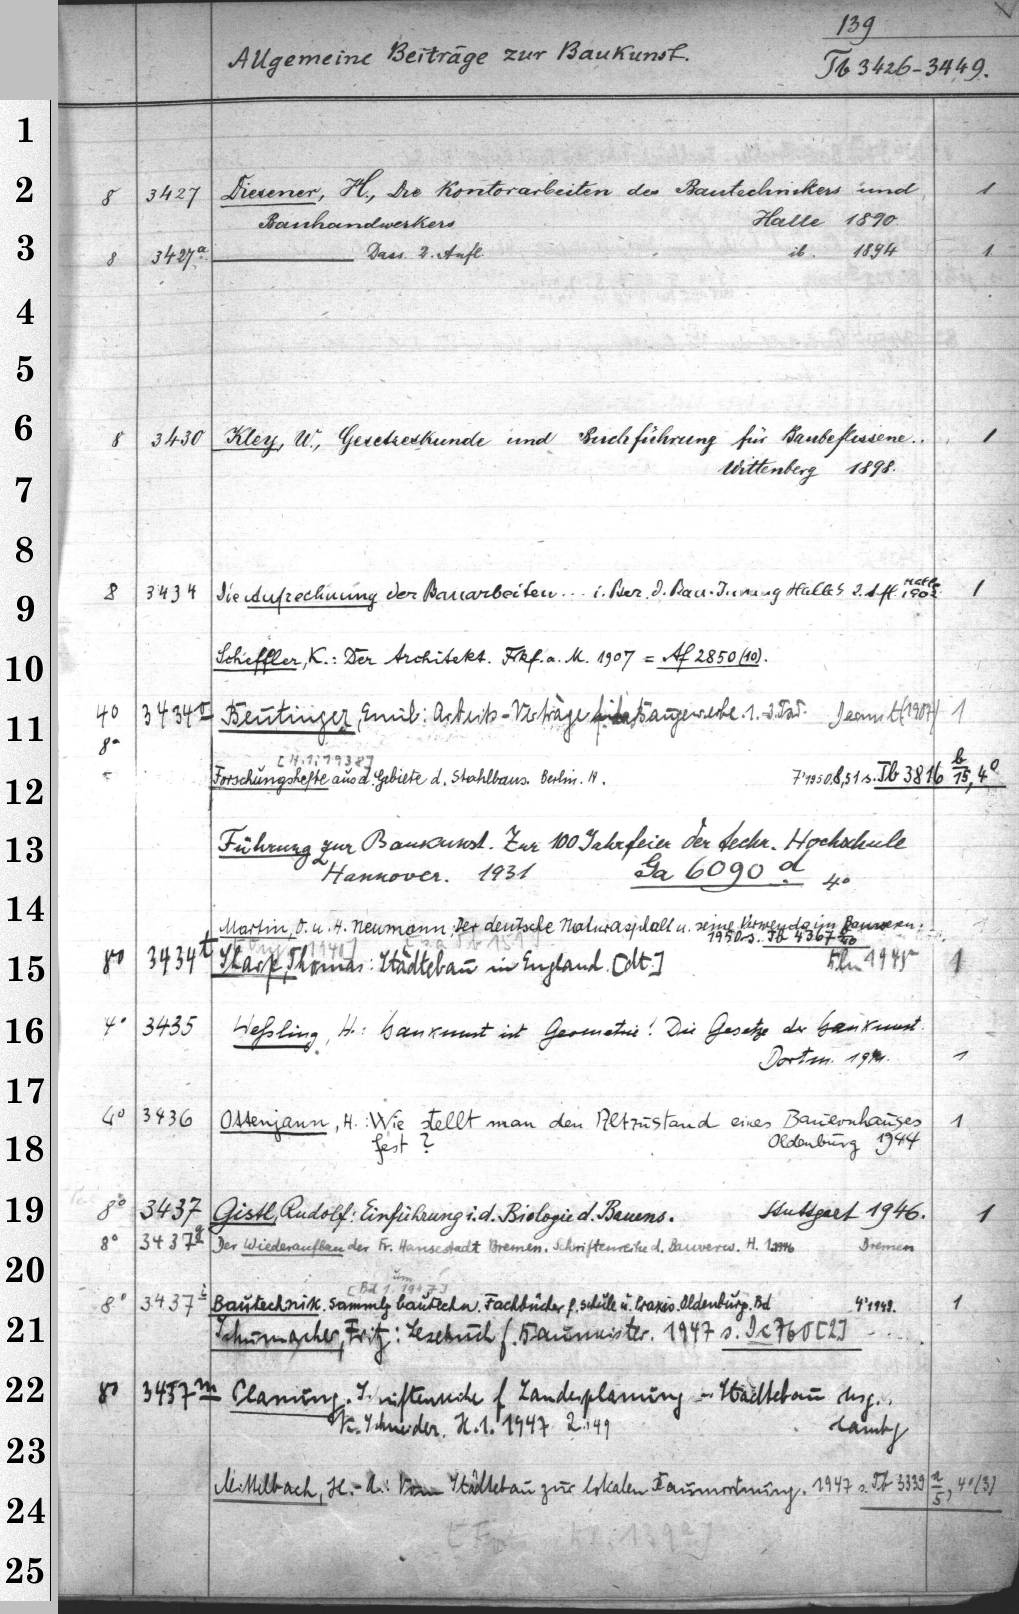 139
Allgemeine Beiträge zur Baukunst.
Tb 3426-3449.
1
2
8 3427 Diesener, H., Die Kontorarbeiten des Bautechnikers und 1
Bauhandwerkers Halle 1890
3
8 3427a Dass. 2. Aufl. ib. 1894 1
4
5
6
8 3430 Kley, W., Gesetzeskunde und Buchführung für Baubeflissene.. 1
Wittenberg 1898.
7
8
9
8 3434 Die Aufrechnung der Bauarbeiten... i. Ber. d. Bau-Innung Halle 2. Aufl. Halle 1902 1
10
Scheffler, K.: Der Architekt. Frkf. a. M. 1907 = Af 2850 (10).
11
4° 3434 Beutinger, Emil: Arbeits-Verträge Baugewerbe. 1.-3. Taf. (1907) 1
8°
[H. 1: 1938]
12
Forschungshefte aus d. Gebiete d. Stahlbaus. Berlin. H. 7'1950, 8,51 s. Tb 3816 b/15, 4°
13
Führung zur Baukunst. Zur 100 Jahrfeier der techn. Hochschule
Hannover. 1931 Ga 6090 d 4°
14
Martin, O. u. H. Neumann, Der deutsche Naturasphalt u. seine Verwendg im Bauwesen.
1950 s. Tb 4367
15
8° 3434t Sharp, Thomas: Städtebau in England. [dt.] Bln 1948 1
16
4° 3435 Weßling, H.: Baukunst ist Geometrie! Die Gesetze der Baukunst.
Dortm. 1
17
4° 3436 Ottenjann, H.: Wie stellt man den Altzustand eines Bauernhauses 1
fest? Oldenburg 1944
18
19
8° 3437 Gistl, Rudolf: Einführung i. d. Biologie d. Bauens. Stuttgart 1946. 1
8° 3437g Der Wiederaufbau der Fr. Hansestadt Bremen. Schriftenreihe d. Bauverw. H. 1. 1946 Bremen
20
[Bd 1. um 1947]
8° 3437i Bautechnik. Sammlg bautechn. Fachbücher f. Schule u. Praxis. Oldenburg. Bd 4'1948. 1
21
Schumacher, Fritz: Lesebuch f. Baumeister. 1947 s. Ic 760 [2]
22
8° 3437m Planung. Schriftenreihe f. Landesplanung u. Städtebau hrsg. v.
K. Schneider. H. 1. 1947 2. 149 Hambg
23
24
Mittelbach, H.-A.: Vom Städtebau zur lokalen Raumordnung. 1947 s. Tb 3339 n/5, 4° (3)
25